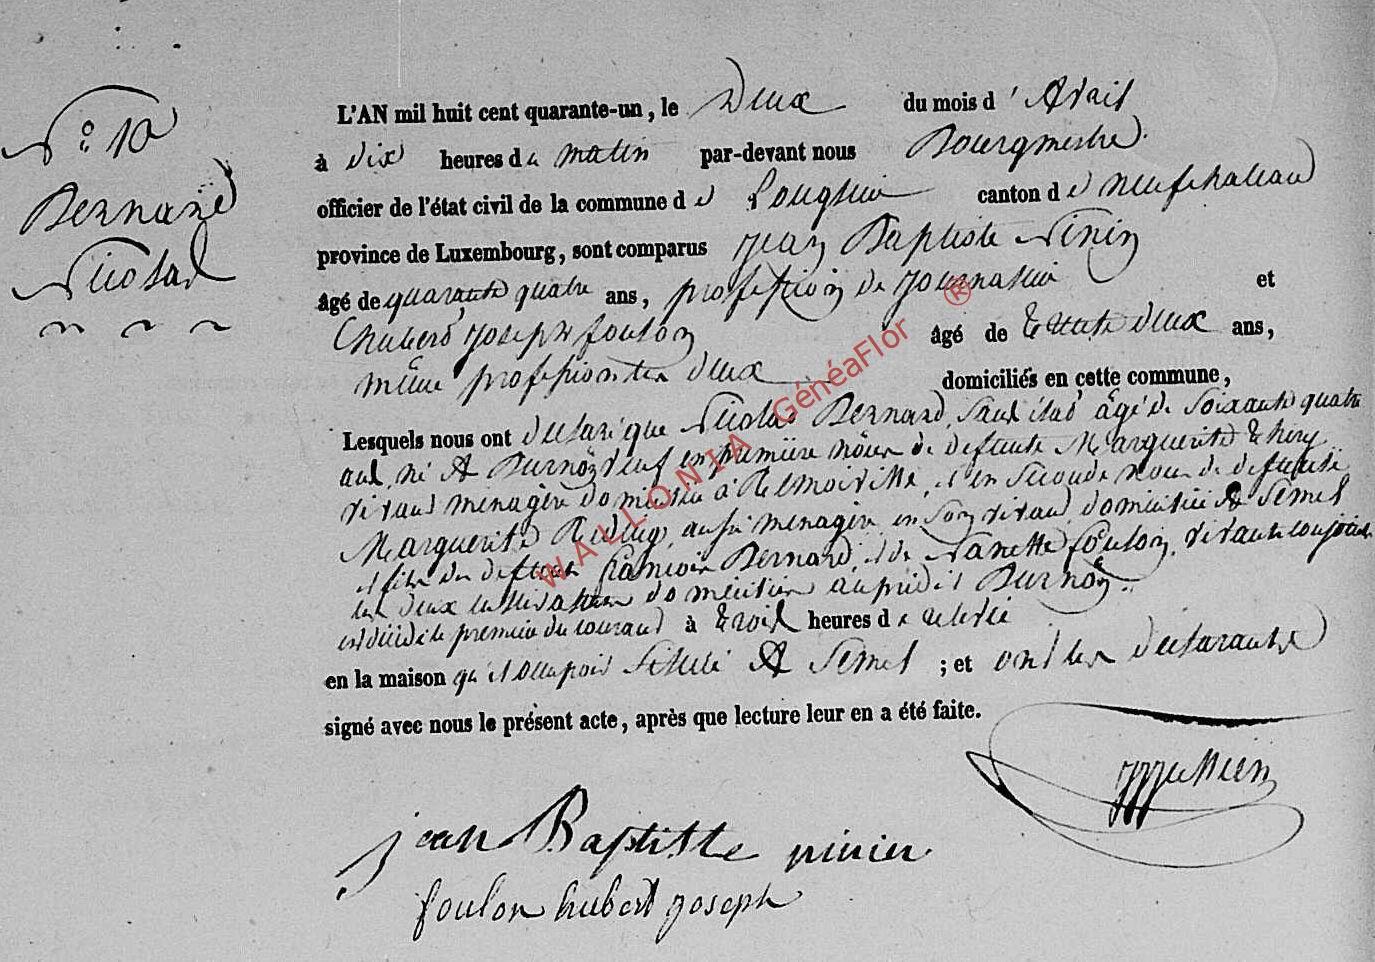 N° 10
Bernard
Nicolas
L'AN mil huit cent quarante-un, le Deux du mois d'Avril
à dix heures du matin par-devant nous Bourgmestre
officier de l'état civil de la commune de Longlier canton de neufchateau
province de Luxembourg, sont comparus jean Baptiste Ninin
âgé de quarante quatre ans, profession de journalier et
hubert joseph foulon âgé de trente deux ans,
même profession tous deux domiciliés en cette commune,
Lesquels nous ont declaré que Nicolas Bernard, sans état âgé de soixante quatre
ans, né à Burnon veuf en première nôces de defunte Marguerite
vivant menagère domiciliée à Remoiville, et en seconde noces de defunte
Marguerite aussi menagère en son vivant domiciliée à Semel
et fils de defunt françois Bernard, et de Nanette foulon, vivants conjoints
tous deux cultivateurs domiciliés au prédit Burnon
est décédé le premier du courant à trois heures de relevée
en la maison qu'il occupoit située à Semel ; et ont les declarants
signé avec nous le présent acte, après que lecture leur en a été faite.
jean Baptiste ninin
foulon hubert joseph
WALLONIA GénéaFlor ®